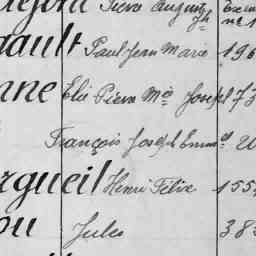 Pierre
ault Paul Jean Marie 196
nne Elie Pierre Mie Joseph 73
François Joseph Emm el
rgueil Henri Félix 155
ou Jules 383